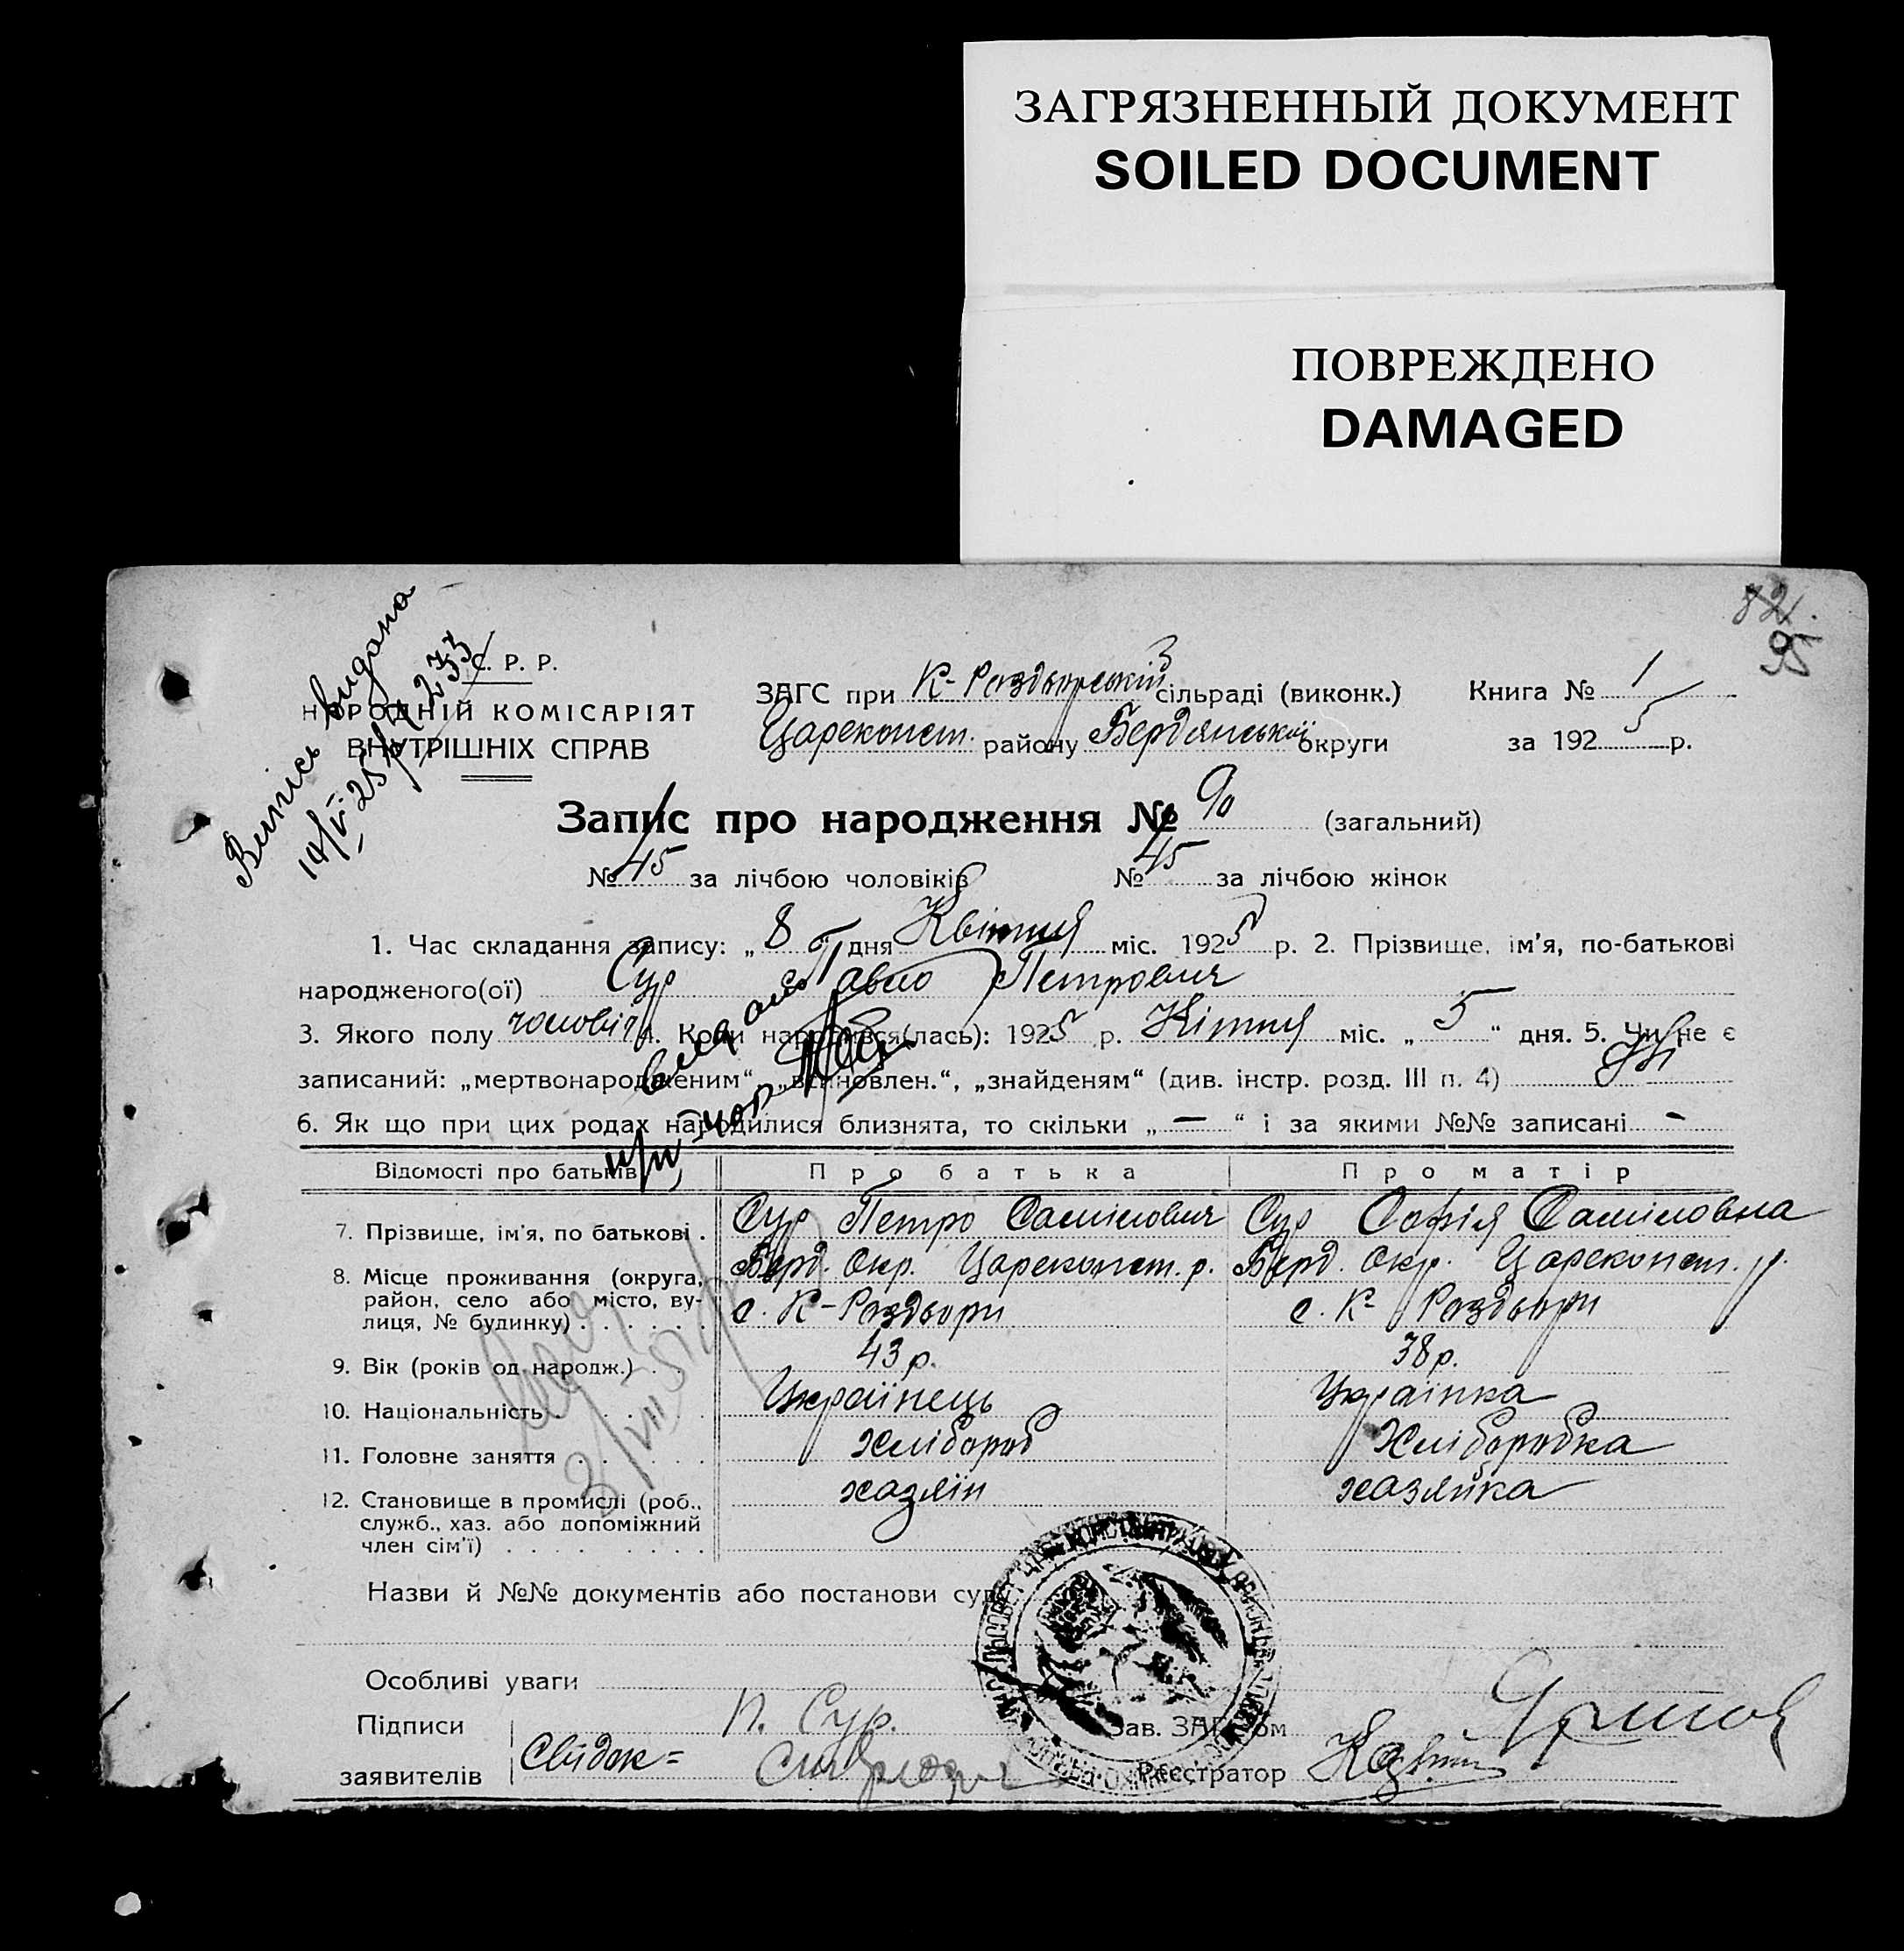 ЗАГРЯЗНЕННЫЙ ДОКУМЕНТ
SOILED DOCUMENT
ПОВРЕЖДЕНО
DAMAGED
82.
95
Випись видана
С. Р. Р.
НАРОДНІЙ КОМІСАРІЯТ
ВНУТРІШНІХ СПРАВ
ЗАГС при К-Роздорській сільраді (виконк.) Книга № 1
Царекопст. району Бердянської округи за 1925 р.
Запис про народження № 90 (загальний)
№ 45 за лічбою чоловіків № 45 за лічбою жінок
1. Час складання запису: „ 8 “ дня Квітня міс. 1925 р. 2. Прізвище, ім’я, по-батькові
народженого(ої) Сур Павло Петрович
3. Якого полу чоловіч 4. Коли народився(лась): 1925 р. Квітня міс. „ 5 “ дня. 5. Чи не є
записаний: „мертвонародженим“, „всиновлен.“, „знайденям“ (див. інстр. розд. III п. 4)
6. Як що при цих родах народилися близнята, то скільки „ — “ і за якими №№ записані -
Відомості про батьків Про батька Про матір
7. Прізвище, ім’я, по батькові . Сур Петро Самійлович Сур Софія Самійловна
8. Місце проживання (округа, Берд. Окр. Царекопст. р. Берд. Окр. Царекопст. р.
район, село або місто, ву- с. К-Роздори с. К- Роздори
лиця, № будинку) . . . . . .
9. Вік (років од народж.) . . . 43 р. 38 р.
10. Національність . . . . . . Українець Українка
11. Головне заняття . . . . . . Хлібороб Хліборобка
12. Становище в промислі (роб., хазяїн хазяйка
служб., хаз. або допоміжний
член сім’ї) . . . . . . . . .
Назви й №№ документів або постанови суду
Особливі уваги
Підписи П. Сур. Зав. ЗАГСом
заявителів Свідок = Реєстратор